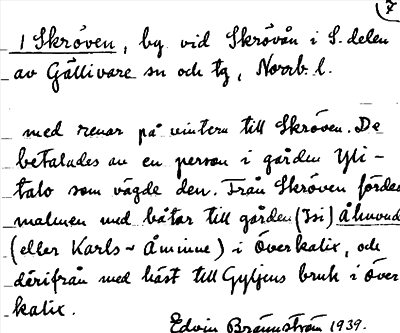 7
1 Skröven, by vid Skrövån i S. delen
av Gällivare sn och tg, Norrb. l.
med renar på vintern till Skröven. De
betalades av en person i gården Yli-
talo som vägde den. Från Skröven fördes
malmen med båtar till gården (Isi) Åhmud
(eller Karls- Åminne) i Överkalix, och
därifrån med häst till Gyljens bruk i Över
kalix.
Edvin Brännström 1939.